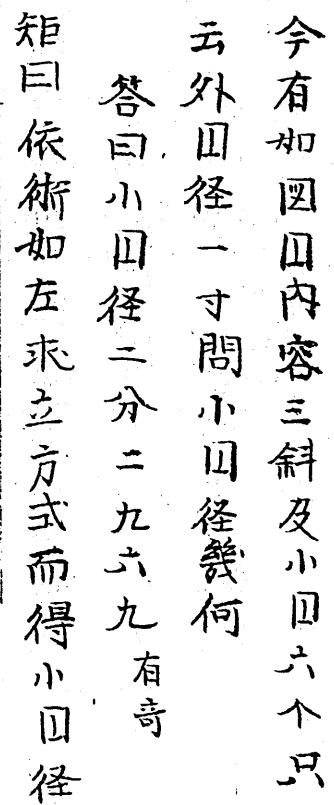 今有如図円内容三斜及小円六个只
云外円径一寸問小円径幾何
答曰小円径二分二九六九有奇
矩曰依術如左求立方式而得小円径